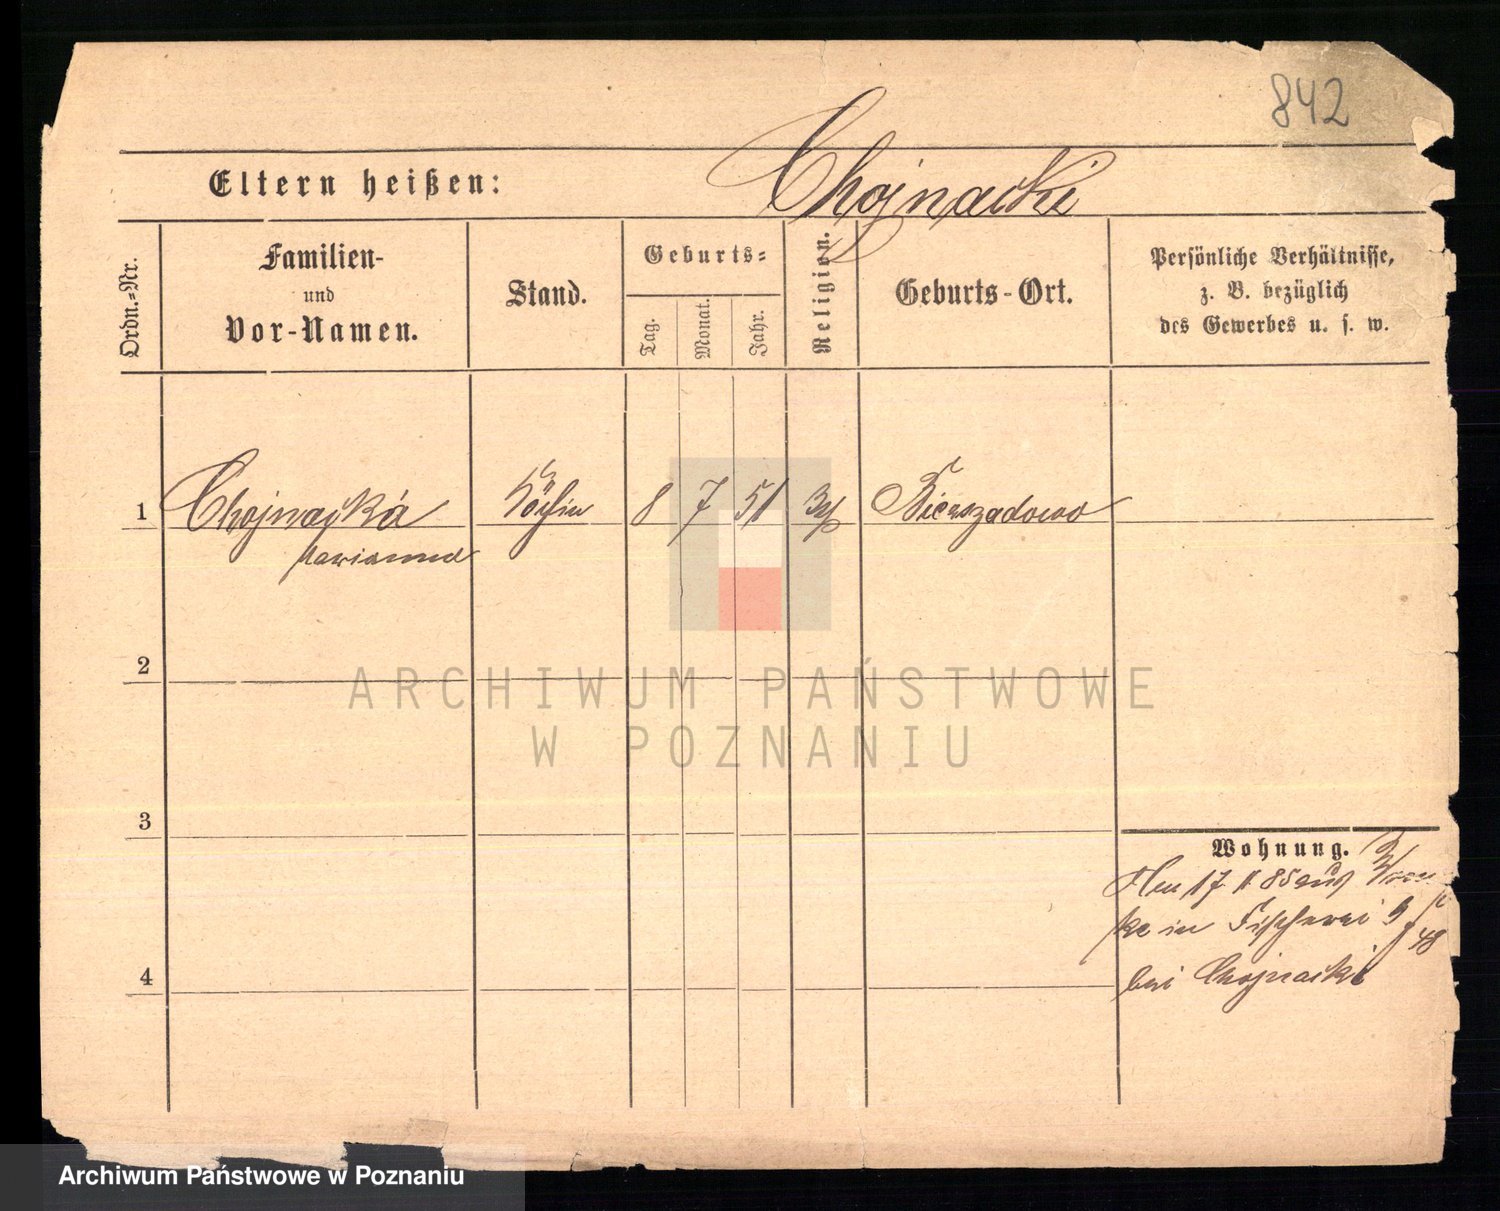 842
Eltern heißen: Chojnacki
Ordn.=Nr.
Familien-
und
Vor-Namen.
Stand.
Geburts=
Tag.
Monat.
Jahr.
Religion.
Geburts-Ort.
Persönliche Verhältnisse,
z. B. bezüglich
des Gewerbes u. s. w.
1 Chojnacká Köchin 8 7 51 Bierzgadowo
Marianna
ARCHIWUM PAŃSTWOWE
W POZNANIU
2
3
Wohnung.
17 85 aus
in Fischerei
48
bei Chojnacki
4
Archiwum Państwowe w Poznaniu